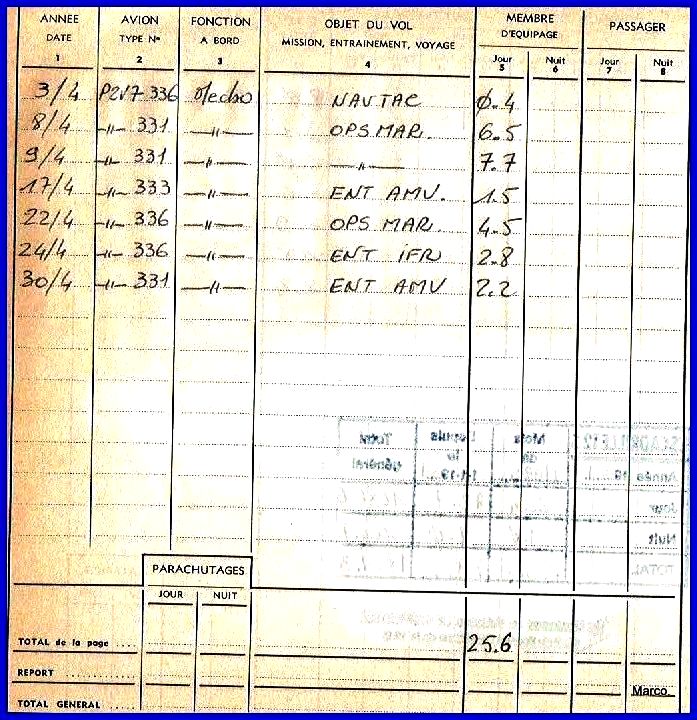 ANNEE AVION FONCTION OBJET DU VOL MEMBRE PASSAGER
DATE TYPE N° A BORD MISSION, ENTRAINEMENT, VOYAGE D'EQUIPAGE
Jour Nuit Jour Nuit
1 2 3 4 5 6 7 8
3/4 P2V7 336 Mecbo NAVTAC 0.4
8/4 -"- 331 -"- OPS MAR. 6.5
9/4 -"- 331 -"- -"- 7.7
17/4 -"- 333 -"- ENT AMV. 1.5
22/4 -"- 336 -"- OPS MAR. 4.5
24/4 -"- 336 -"- ENT IFR 2.8
30/4 -"- 331 -"- ENT AMV 2.2
Total Depuis Mois ESCADRILLE 12
général le de Année 19
1-1-19
Jour
Nuit
TOTAL
PARACHUTAGES
JOUR NUIT
TOTAL de la page 25.6
REPORT Marco
TOTAL GENERAL